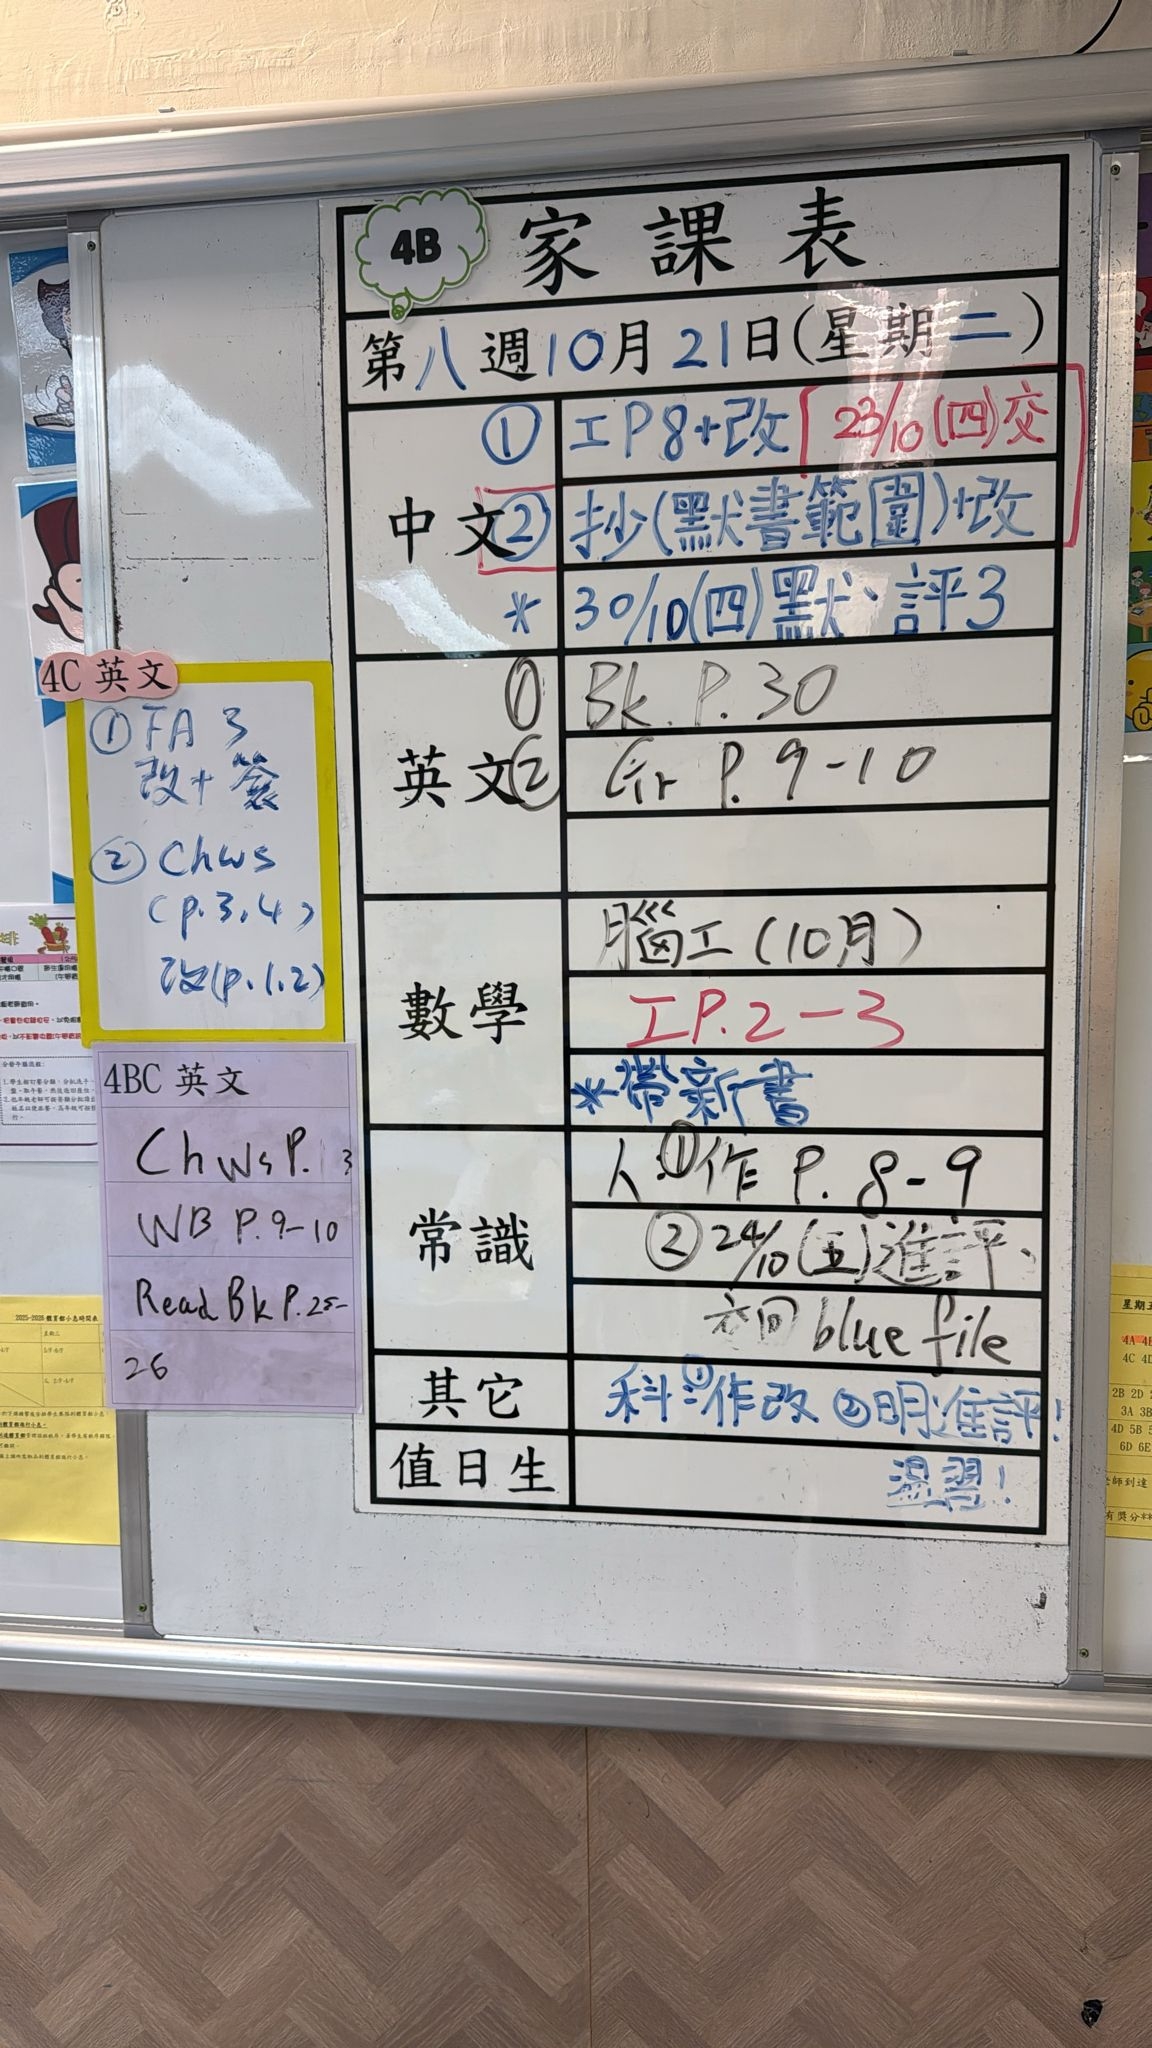 4B 家課表
第八週10月21日(星期二)
中文
① 工P8+改 23/10(四)交
② 抄(默書範圍)+改
* 30/10(四)默、評3
英文
① Bk. P. 30
② Gr P. 9-10
數學
腦工(10月)
工P.2-3
*帶新書
常識
人:①作 P. 8-9
②24/10(五)進評、
交回 blue file
其它
科:①作改 ②明進評!
值日生
溫習!
4C 英文
① FA 3
改+簽
② Chws
(p.3,4)
改(p.1,2)
4BC 英文
Ch Ws P. 3
WB P. 9-10
Read Bk P. 25-
26
2025-2026
星期五
4C 4D
2B 2D
3A 3B
4D 5B
6D 6E